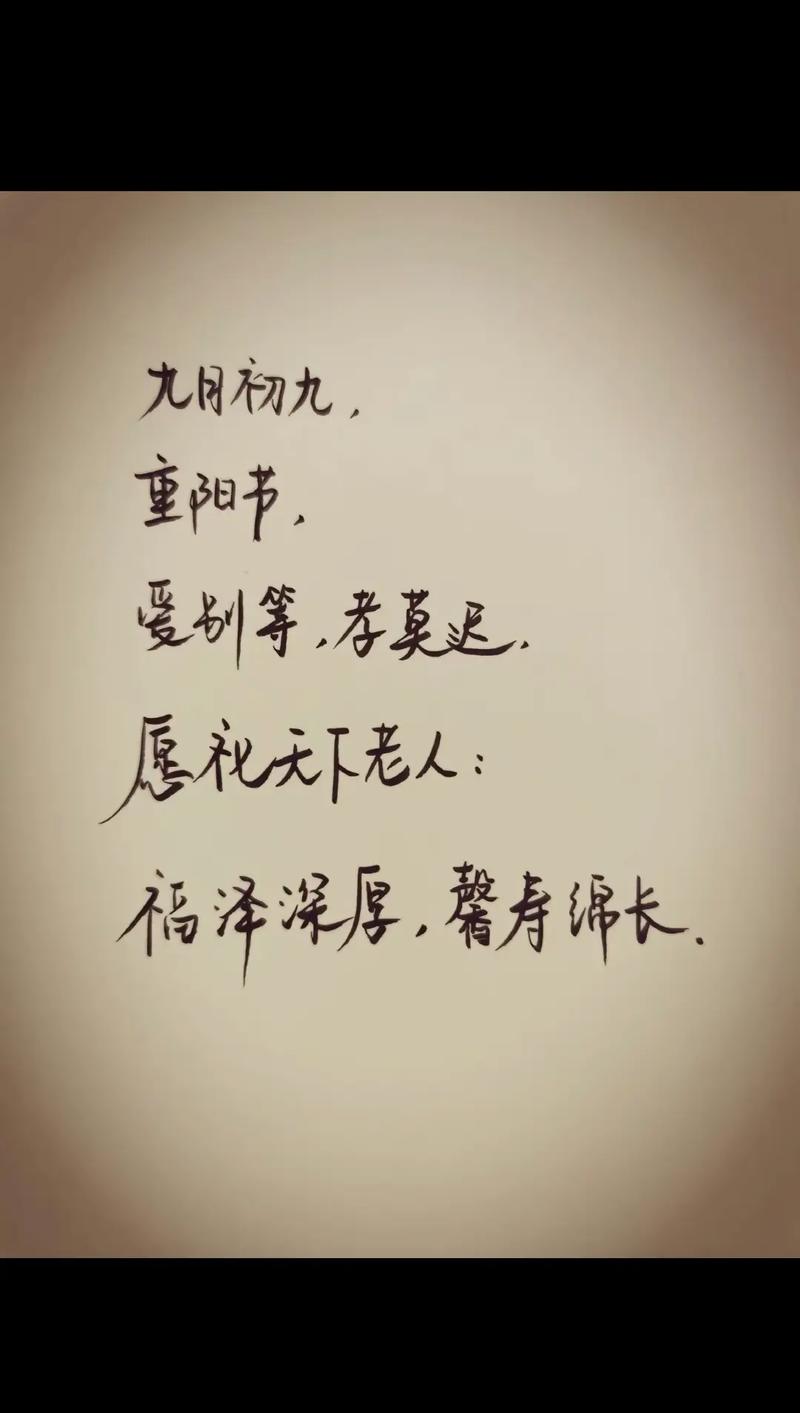 九月初九，
重阳节，
爱别等，孝莫迟，
愿祝天下老人：
福泽深厚，馨寿绵长.